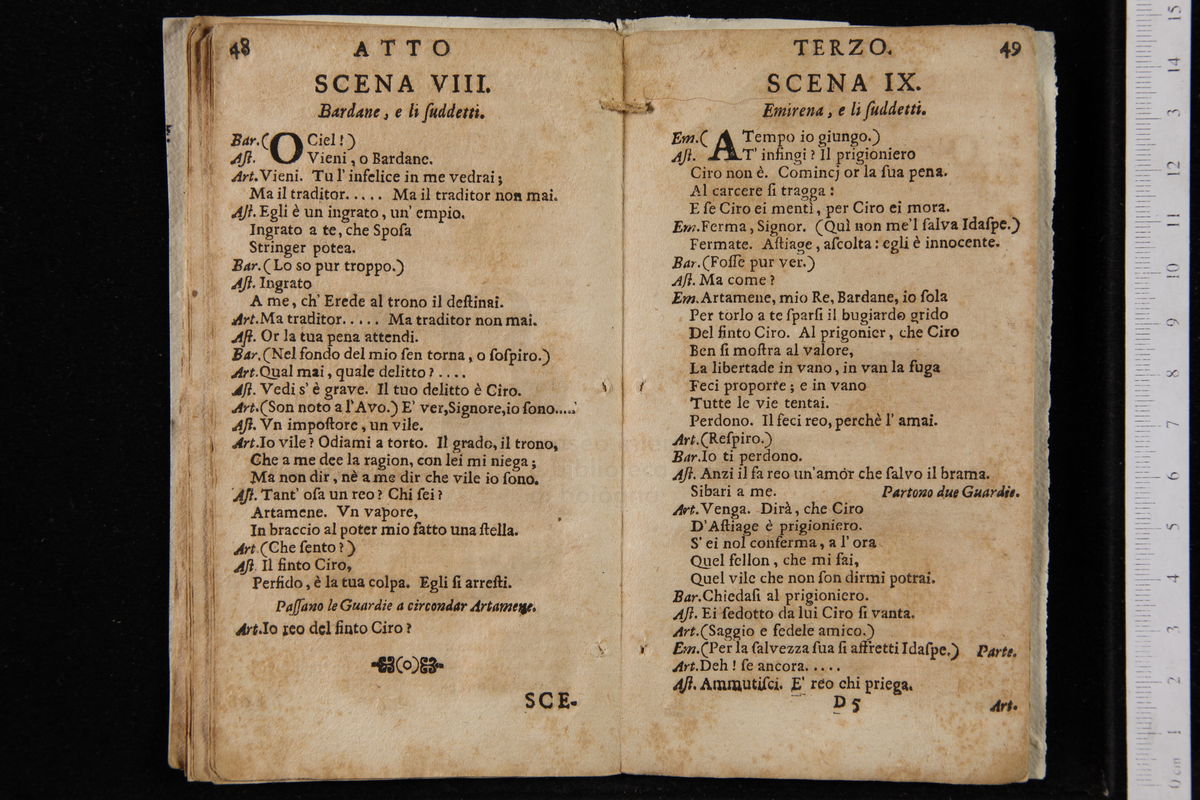 48 ATTO
SCENA VIII.
Bardane, e li ſuddetti.
Bar. (O Ciel!)
Aſt. Vieni, o Bardane.
Art. Vieni. Tu l' infelice in me vedrai;
Ma il traditor..... Ma il traditor non mai.
Aſt. Egli è un ingrato, un' empio.
Ingrato a te, che Spoſa
Stringer potea.
Bar. (Lo so pur troppo.)
Aſt. Ingrato
A me, ch' Erede al trono il deſtinai.
Art. Ma traditor..... Ma traditor non mai.
Aſt. Or la tua pena attendi.
Bar. (Nel fondo del mio ſen torna, o ſoſpiro.)
Art. Qual mai, quale delitto?....
Aſt. Vedi s' è grave. Il tuo delitto è Ciro.
Art. (Son noto a l'Avo.) E' ver, Signore, io ſono.....
Aſt. Vn impoſtore, un vile.
Art. Io vile? Odiami a torto. Il grado, il trono,
Che a me dee la ragion, con lei mi niega;
Ma non dir, nè a me dir che vile io ſono.
Aſt. Tant' oſa un reo? Chi ſei?
Artamene. Vn vapore,
In braccio al poter mio fatto una ſtella.
Art. (Che ſento?)
Aſt. Il finto Ciro,
Perfido, è la tua colpa. Egli ſi arreſti.
Paſſano le Guardie a circondar Artamene.
Art. Io reo del finto Ciro?
SCE-
TERZO. 49
SCENA IX.
Emirena, e li ſuddetti.
Em. (A Tempo io giungo.)
Aſt. T' infingi? Il prigioniero
Ciro non è. Comincj or la ſua pena.
Al carcere ſi tragga:
E ſe Ciro ei mentì, per Ciro ei mora.
Em. Ferma, Signor. (Quì non me'l ſalva Idaſpe.)
Fermate. Aſtiage, aſcolta: egli è innocente.
Bar. (Foſſe pur ver.)
Aſt. Ma come?
Em. Artamene, mio Re, Bardane, io ſola
Per torlo a te ſparſi il bugiardo grido
Del finto Ciro. Al prigonier, che Ciro
Ben ſi moſtra al valore,
La libertade in vano, in van la fuga
Feci proporre; e in vano
Tutte le vie tentai.
Perdono. Il feci reo, perchè l' amai.
Art. (Reſpiro.)
Bar. Io ti perdono.
Aſt. Anzi il fa reo un'amór che ſalvo il brama.
Sibari a me. Partono due Guardie.
Art. Venga. Dirà, che Ciro
D'Aſtiage è prigioniero.
S' ei nol conferma, a l' ora
Quel fellon, che mi fai,
Quel vile che non ſon dirmi potrai.
Bar. Chiedaſi al prigioniero.
Aſt. Ei ſedotto da lui Ciro ſi vanta.
Art. (Saggio e fedele amico.)
Em. (Per la ſalvezza ſua ſi affretti Idaſpe.) Parte.
Art. Deh! ſe ancora.....
Aſt. Ammutiſci. E' reo chi priega.
D 5 Art.